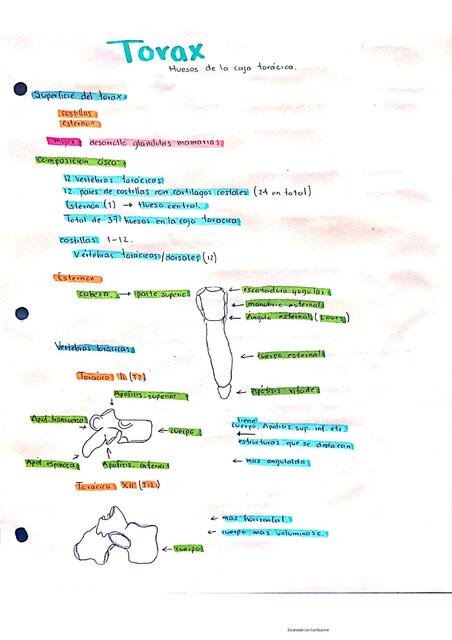 Torax
Huesos de la caja torácica.
Superficie del torax
costillas
esternon
mujer: desarrollo glandulas mamarias
composición ósea:
12 vertebras torácicas
12 pares de costillas con cartilagos costales (24 en total)
Esternón (1) → Hueso central.
Total de 37 huesos en la caja toracica
costillas 1-12.
Vértebras torácicas/dorsales (12)
Esternon
cabeza → parte superior
← escotadura yugular
← manubrio esternal
← Ángulo esternal (Louis)
← cuerpo esternal
← Apófisis xifoide
Vertebras toracicas
Apofisis superior
Apof. transversa
← cuerpo
Apof. espinosa
Apofisis inferior
tiene
cuerpo, Apofisis sup. inf. etc.
← estructuras que se destacan
← mas angulada
Torácica XII (T12)
← mas horizontal
← cuerpo mas voluminoso.
← cuerpo
Escaneado con CamScanner